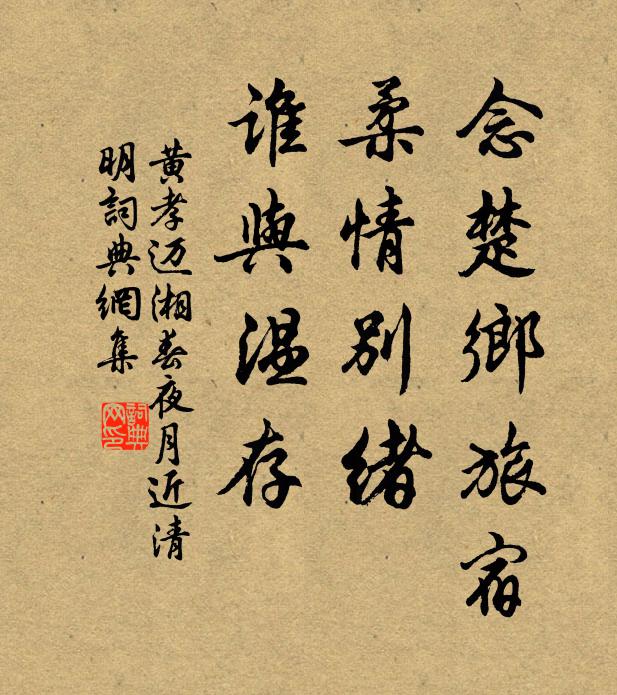 念楚鄉旅宿
柔情别緒
誰與温存
黄孝迈湘春夜月近清
明詞典網集
詞典
网印